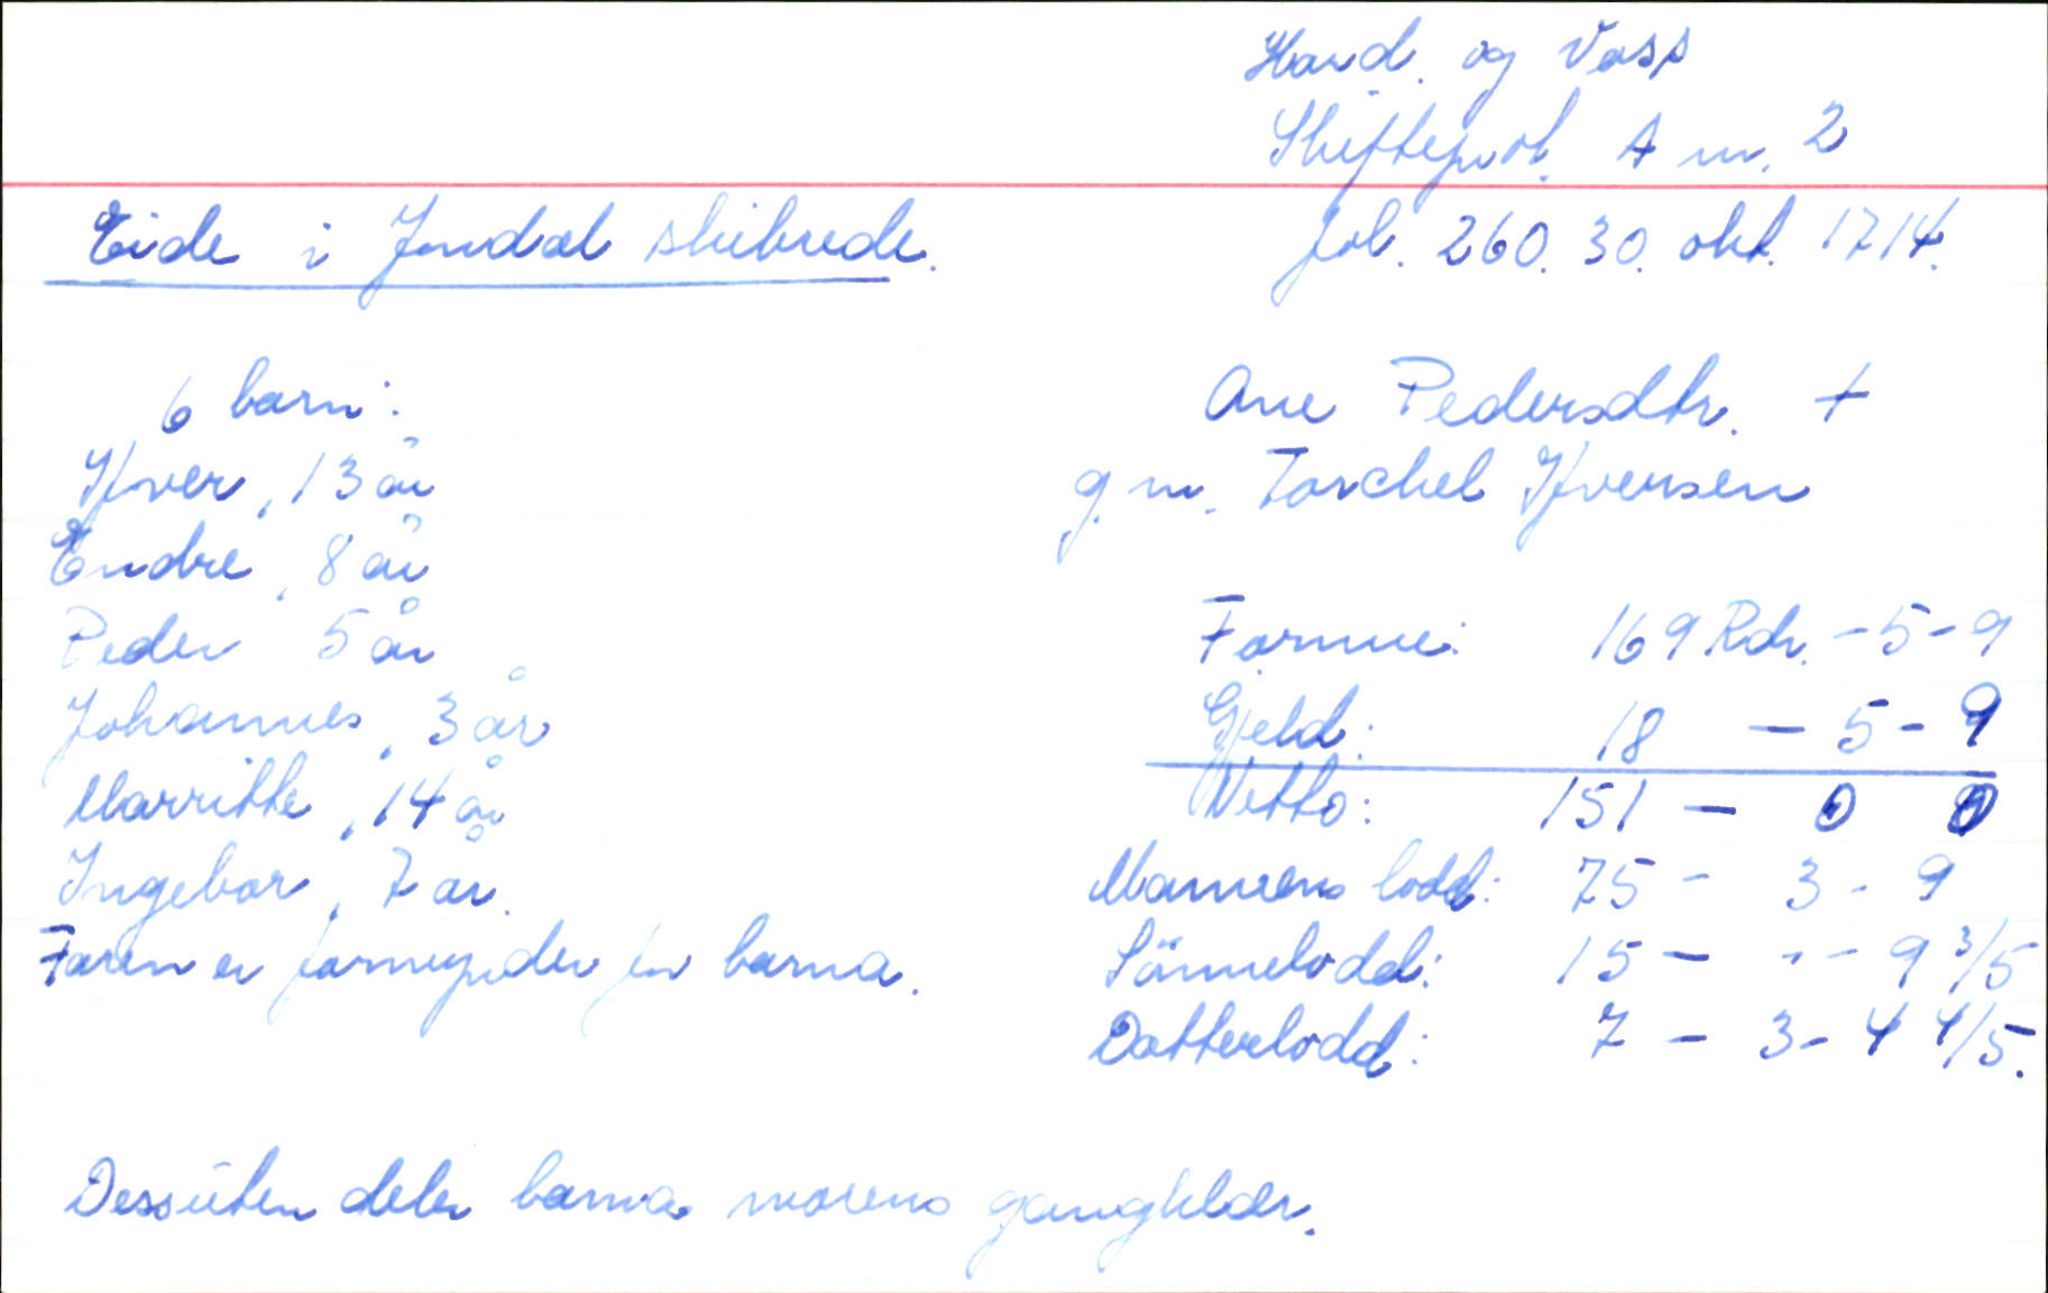 Hard. og Voss
Skifteprot. A nr. 2
Eide i Jondal skibrede.
fol. 260. 30. okt. 1714.
6 barn:
Ifver, 13 år
Endre, 8 år
Peder 5 år
Johannes, 3 år
Marritte, 14 år
Ingebor, 7 år.
Faren er formynder for barna.
Ane Pedersdtr. +
g.m. Torchel Ifversen
Formue: 169 Rdr. - 5 - 9
Gjeld: 18 - 5 - 9
Netto: 151 - 0 0
Mannens lodd: 75 - 3 - 9
Sönnelodd: 15 - - - 9 3/5
Datterlodd: 7 - 3 - 4 4/5.
Dessuten deler barna morens gangklær.